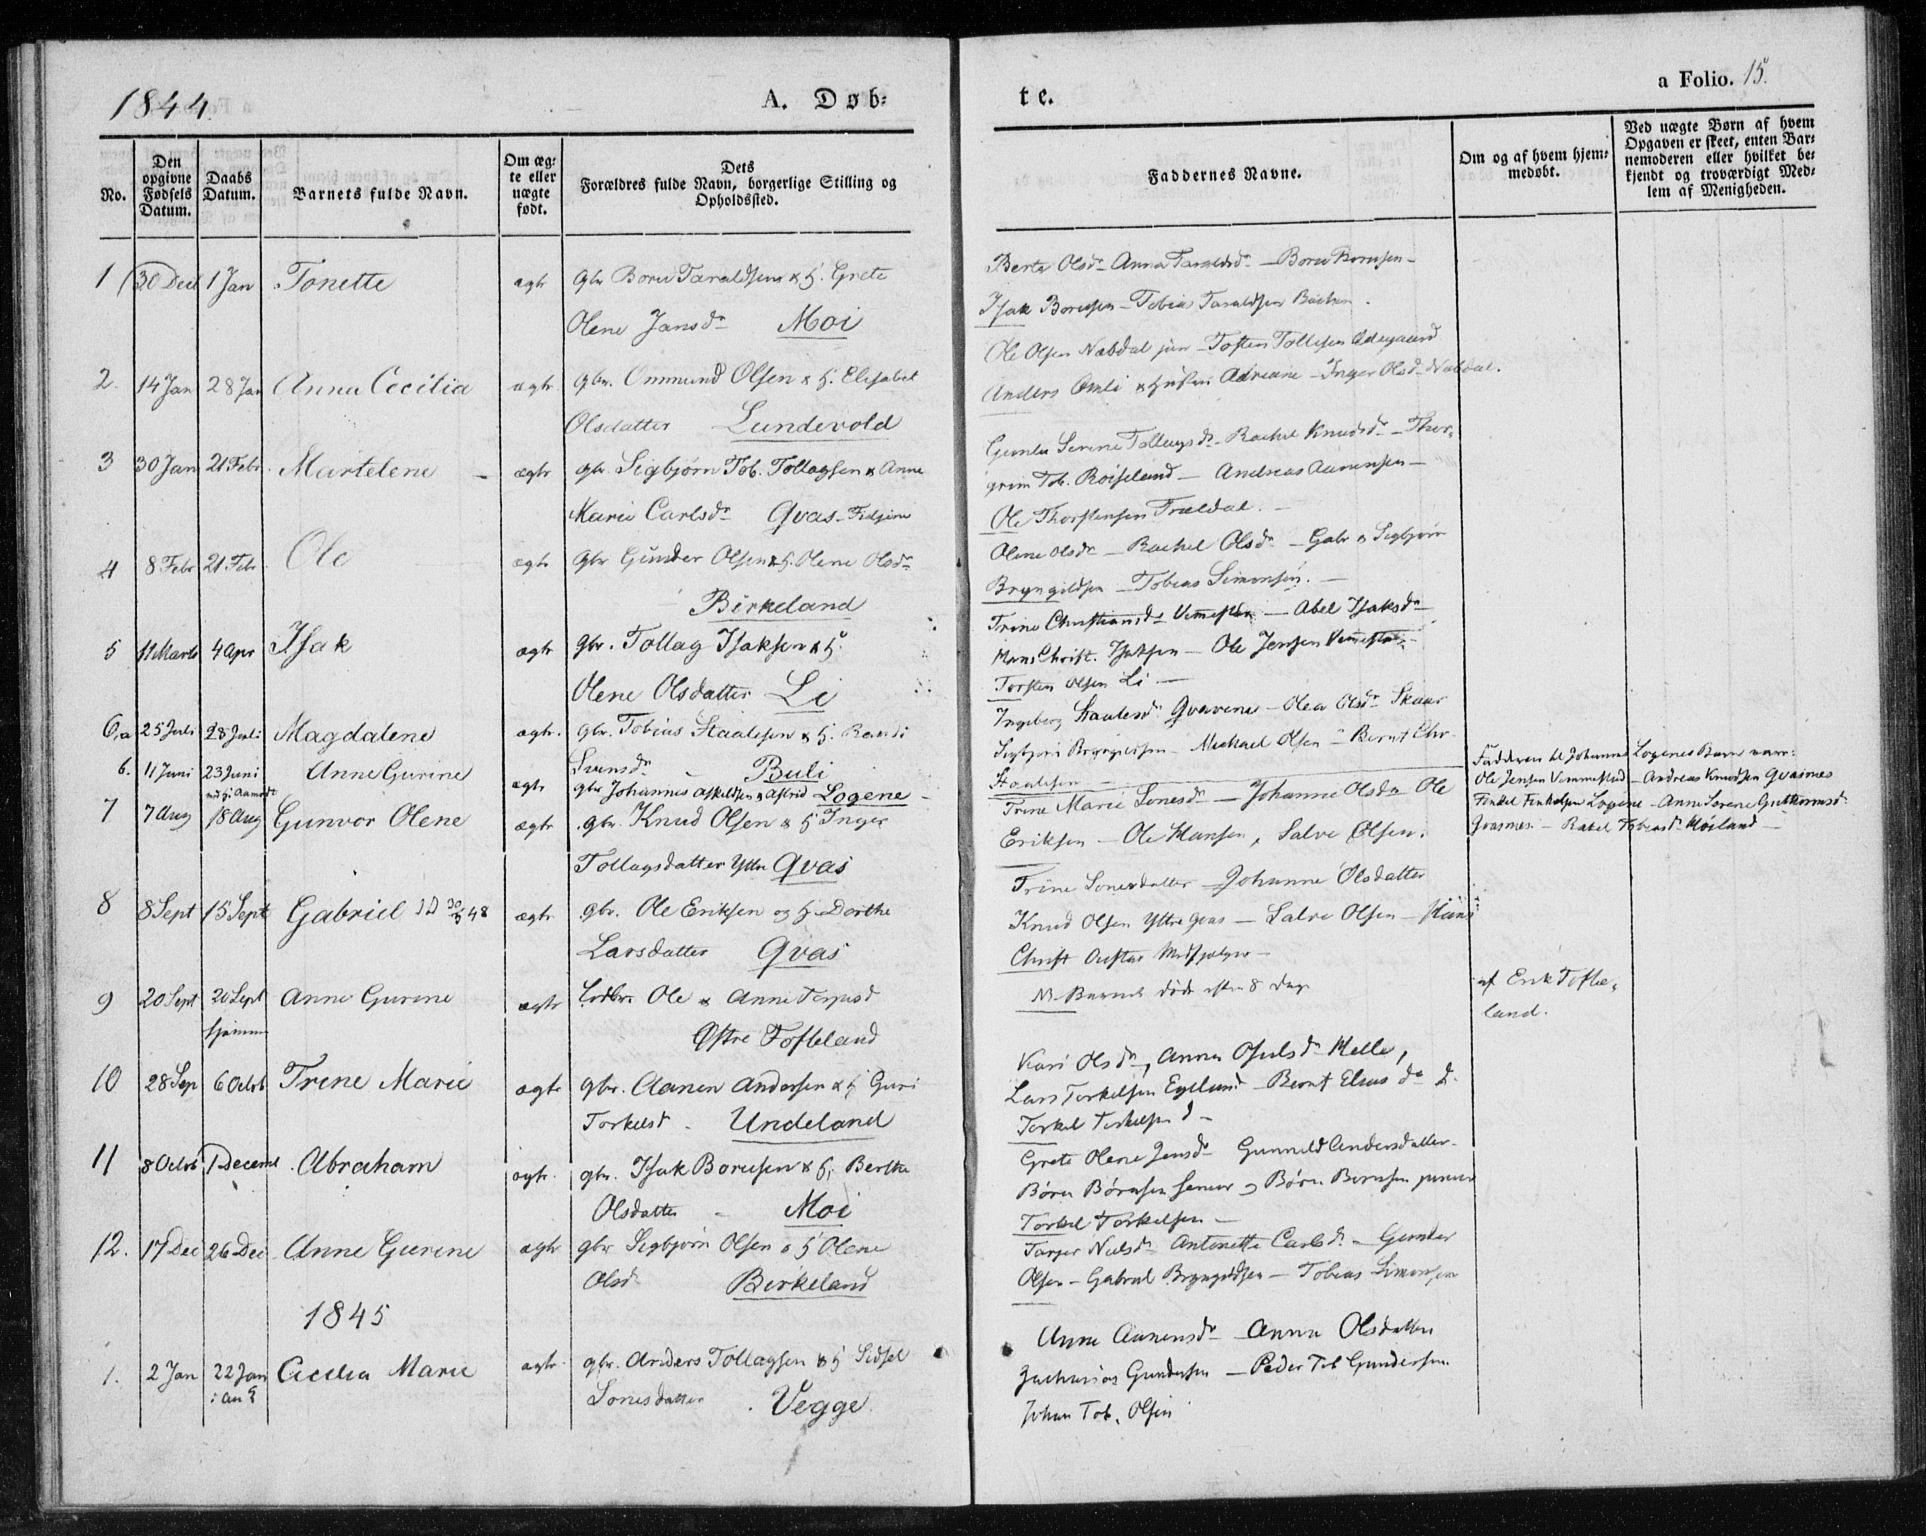 1844
A. Døb-
te.
a Folio. 15.
No.
Den opgivne Fødsels Datum.
Daabs Datum.
Barnets fulde Navn.
Om ægte eller nægte født.
Dets Forældres fulde Navn, borgerlige Stilling og Opholdssted.
Faddernes Navne.
Om og af hvem hjemmedøbt.
Ved uægte Børn af hvem Opgaven er skeet, enten Barnemoderen eller hvilket bekjendt og troværdigt Medlem af Menigheden.
1 30 Dec 1 Jan Tonette ægte gbr Boru Taraldsen & H. Grete
Olene Jansdr Moi
Berte Olsdr Anna Taraldsdr - Boru Borusen -
Isak Borusen - Tobias Taraldsen
2. 14 Jan 28 Jan Anna Cecilia ægte gbr. Ommund Olsen & H. Elisabet
Olsdatter Lundevold
Ole Olsen Nabdal jun - Tosten Tollefsen Ødegaard
Anders Omli & Adriane - Inger Olsdr Nabdal.
3 30 Jan 21 Febr. Martelene - ægte gbr. Sigbjørn Tob. Tollagsen & Anne
Marie Carlsdr Qvas
Serine Tollagsdr - Rachel Knudsdr - Thor-
grim Tob. Røiseland - Andreas Aanensen -
Ole Thorstensen Trældal. -
4 8 Febr 21 Febr. Ole ægte gbr Gunder Olsen & H. Olene Olsdr
Birkeland
Olene Olsdr - Rachel Olsdr - Gabr & Sigbjørn
Bryngildsen - Tobias Simonsen. -
5 11 Marts 4 Apr Isak ægte gbr. Tollag Isaksen & H.
Olene Olsdatter Li
Trine Christiansdr Vemestad - Abel Isaksdr
Hans Christ. Isaksen - Ole Jensen Vemestad -
Torsten Olsen Li -
6.a 25 Juli 28 Juli Magdalene ægte. gbr. Tobias Staalesen & H. Randi
Svensdr Buli
Ingeborg Staalesdr Qvavene - Olea Olsdr Skaar
Sigbjørn Bryngildsen - Michael Olsen - Bernt Chr.
Staalesen -
6. 11 Juni 23 Juni Anne Gurine ægte gbr Johannes Askildsen & Astrid Logene -
Fadderne til Johannes Logenes Barn vare:
Ole Jensen Vemmestad - Andreas Knudsen Qvasnes
Finkel Finkelsen Logene - Anne Serene Guttormsd:
Qvasnes. - Rakel Tobiasdr Høiland -
7 7 Aug 18 Aug Gunvor Olene ægte gbr. Knud Olsen & H Inger
Tollagsdatter Ytre Qvas
Trine Marie Sonesdr - Johanne Olsdr Ole
Eriksen - Ole Hansen, Salve Olsen.
8 8 Sept 15 Sept Gabriel ægte gbr. Ole Eriksen og H. Dorthe
Larsdatter Qvas
Trine Sonesdatter - Johanne Olsdatter
Knud Olsen Ytre Qvas - Salve Olsen - Hans
Christ
9 20 Sept 20 Sept Anne Gurine ægte Ole & Anne Terjesd
hjemme Østre Tofteland
Barnet døde efter 8 Dage
af Erik Tofte-
land.
10 28 Sep 6 Octob Trene Marie ægte gbr. Aanen Andersen & H Guri
Torkelsd - Undeland
Kari Olsdr, Anna Osulsdr Helle,
Lars Torkelsen Egeland - Bernt
Torkel Torkelsen
11 8 Octob 1 Decemb Abraham ægte. gbr. Isak Borusen & H. Berthe
Olsdatter - Moi
Grete Olene Jensdr Gunnild Andersdatter -
Børu Børusen senior & Børu Borusen junior
Torkel Torkelsen -
12. 17 Dec 26 Dec Anne Gurine ægte gbr Sigbjørn Olsen & H Olene
Olsd Birkeland
Tarjer Nielsdr Antonette Carlsdr - Gunder
Olsen - Gabriel Bryngildsen - Tobias Simonsen
1845
1. 2 Jan 22 Jan Cecilia Marie ægte. gbr. Anders Tollagsen & H Sidsel
Sonesdatter. Vegge
Anne Aanensdr Anna Olsdatter
Zacharias Gundersen - Peder Tob Gundersen
Johan Tob. Olsen